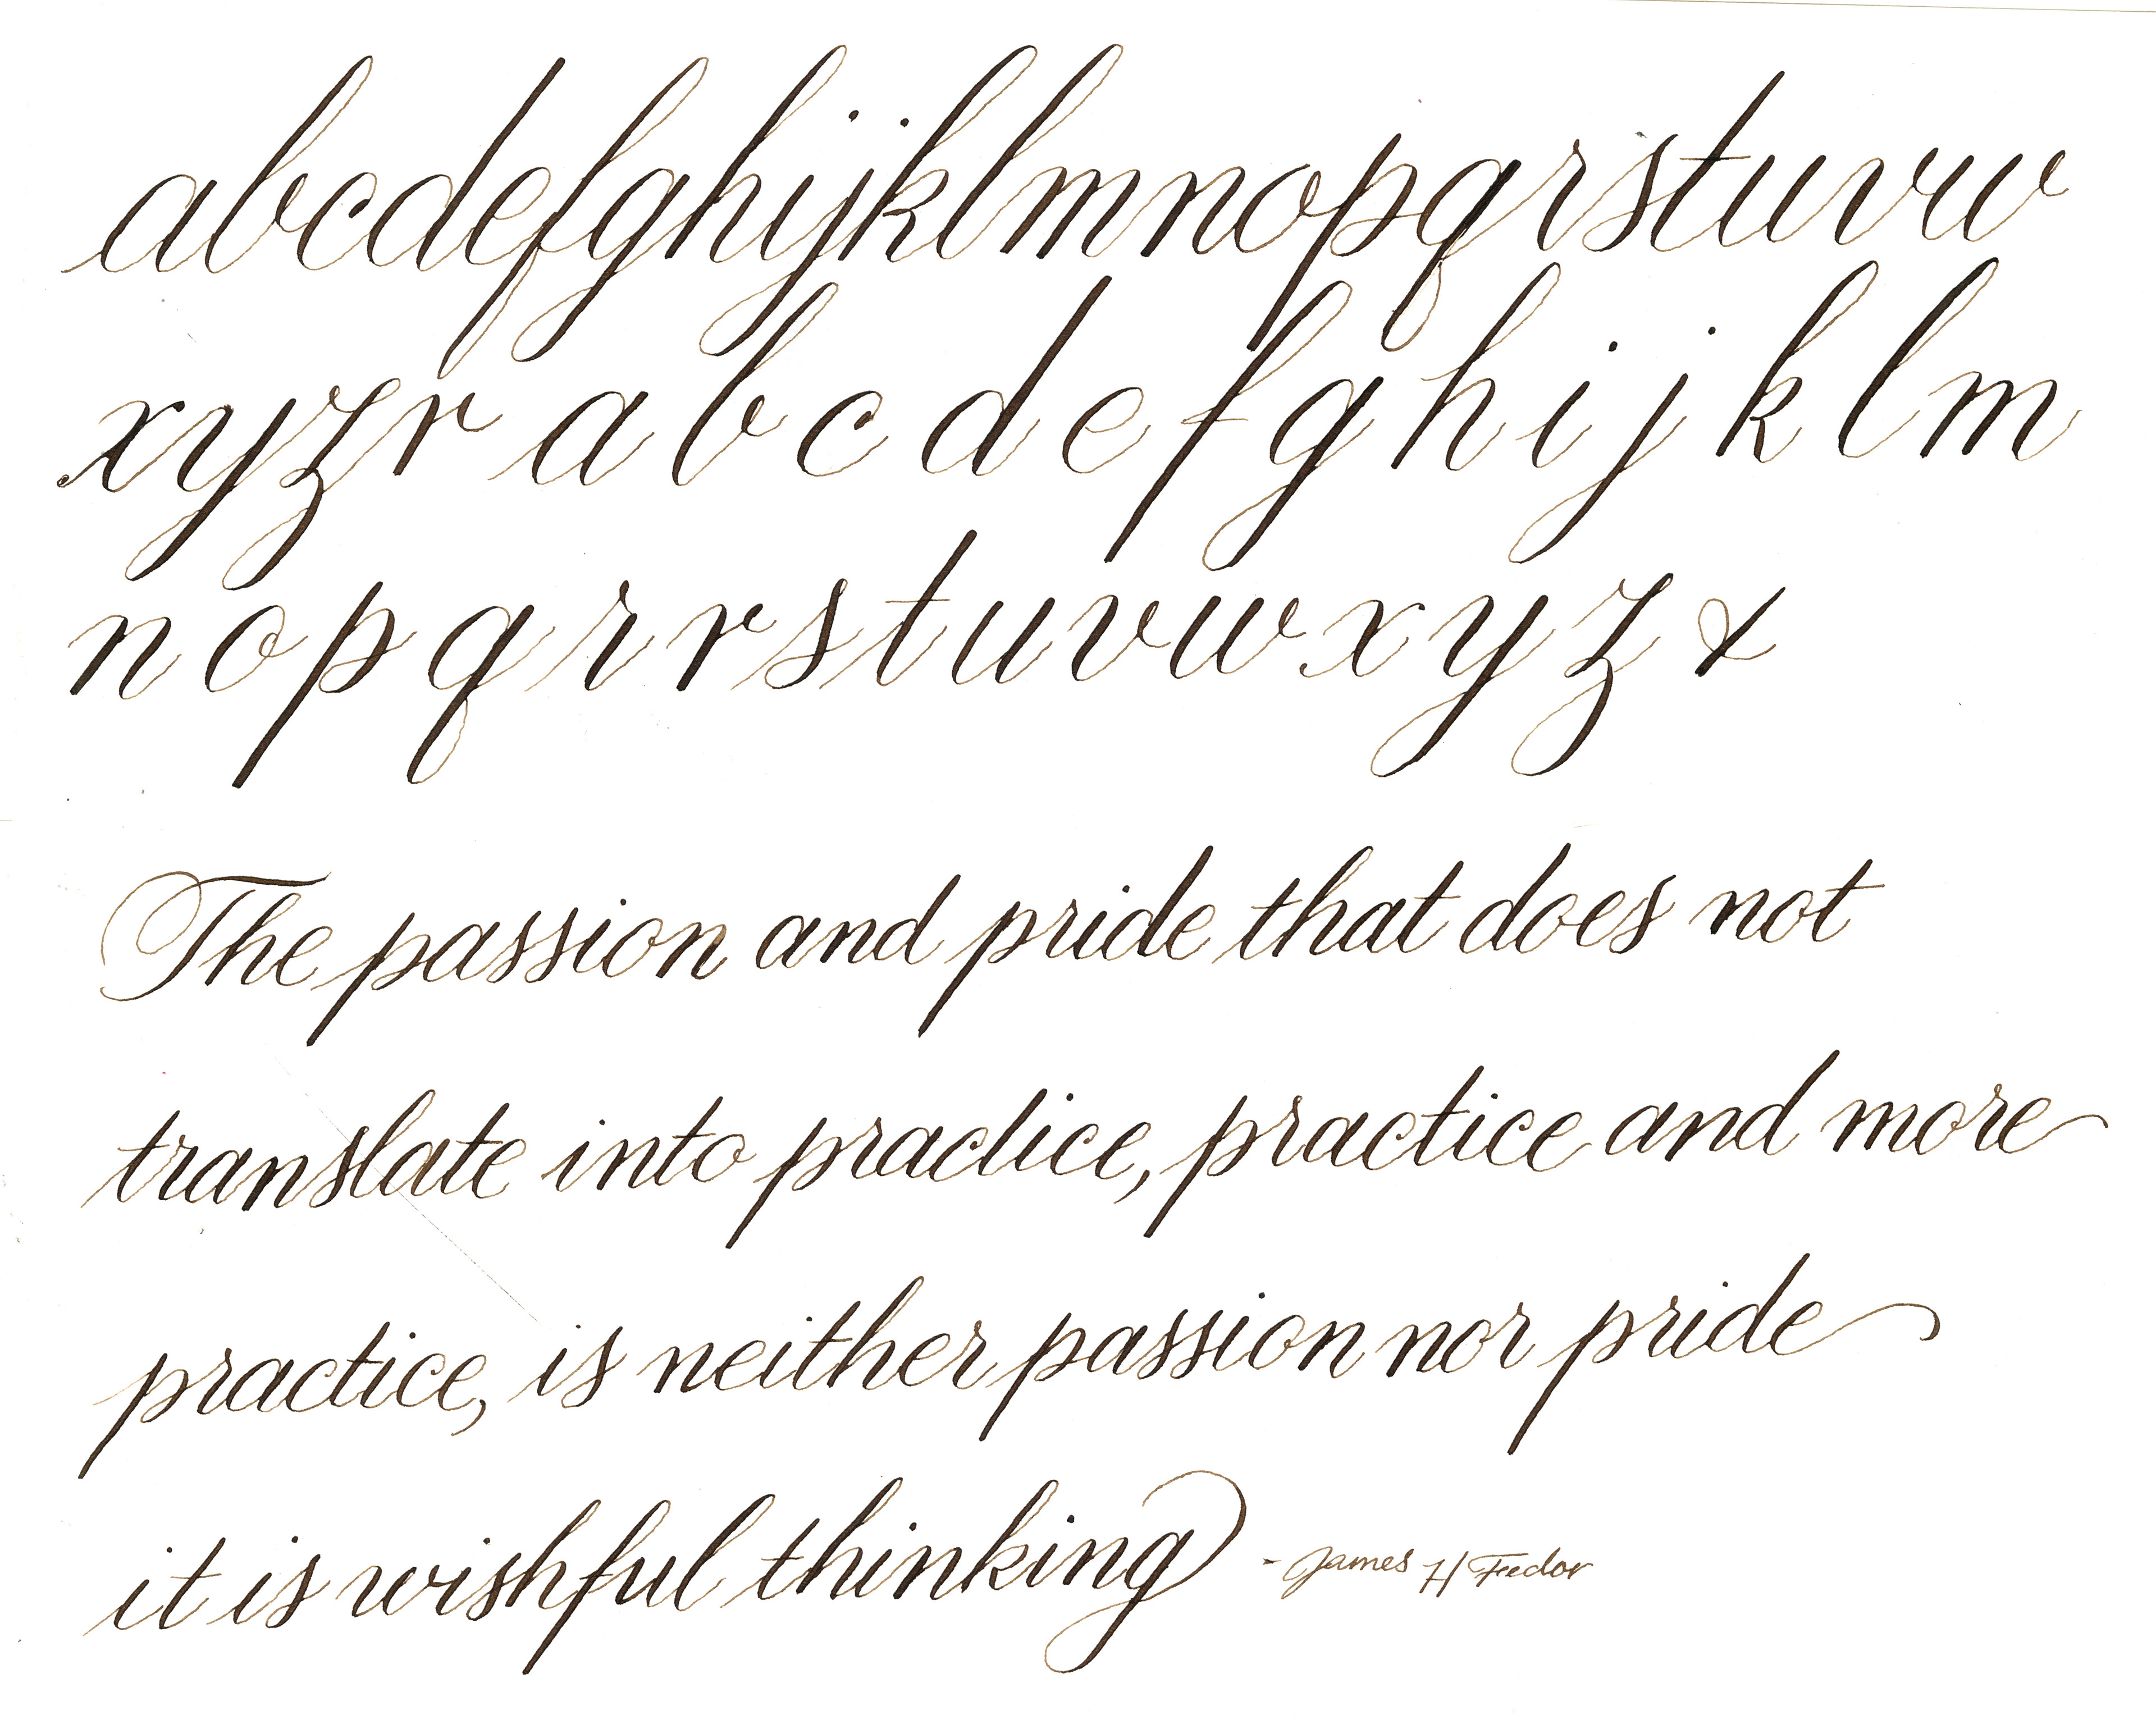 abcdefghijklmnopqrstuvw
xyzr a b c d e f g h i j k l m
n o p q r r s t u v w x y z &
The passion and pride that does not
translate into practice, practice and more
practice, is neither passion nor pride
it is wishful thinking - James H Fedor